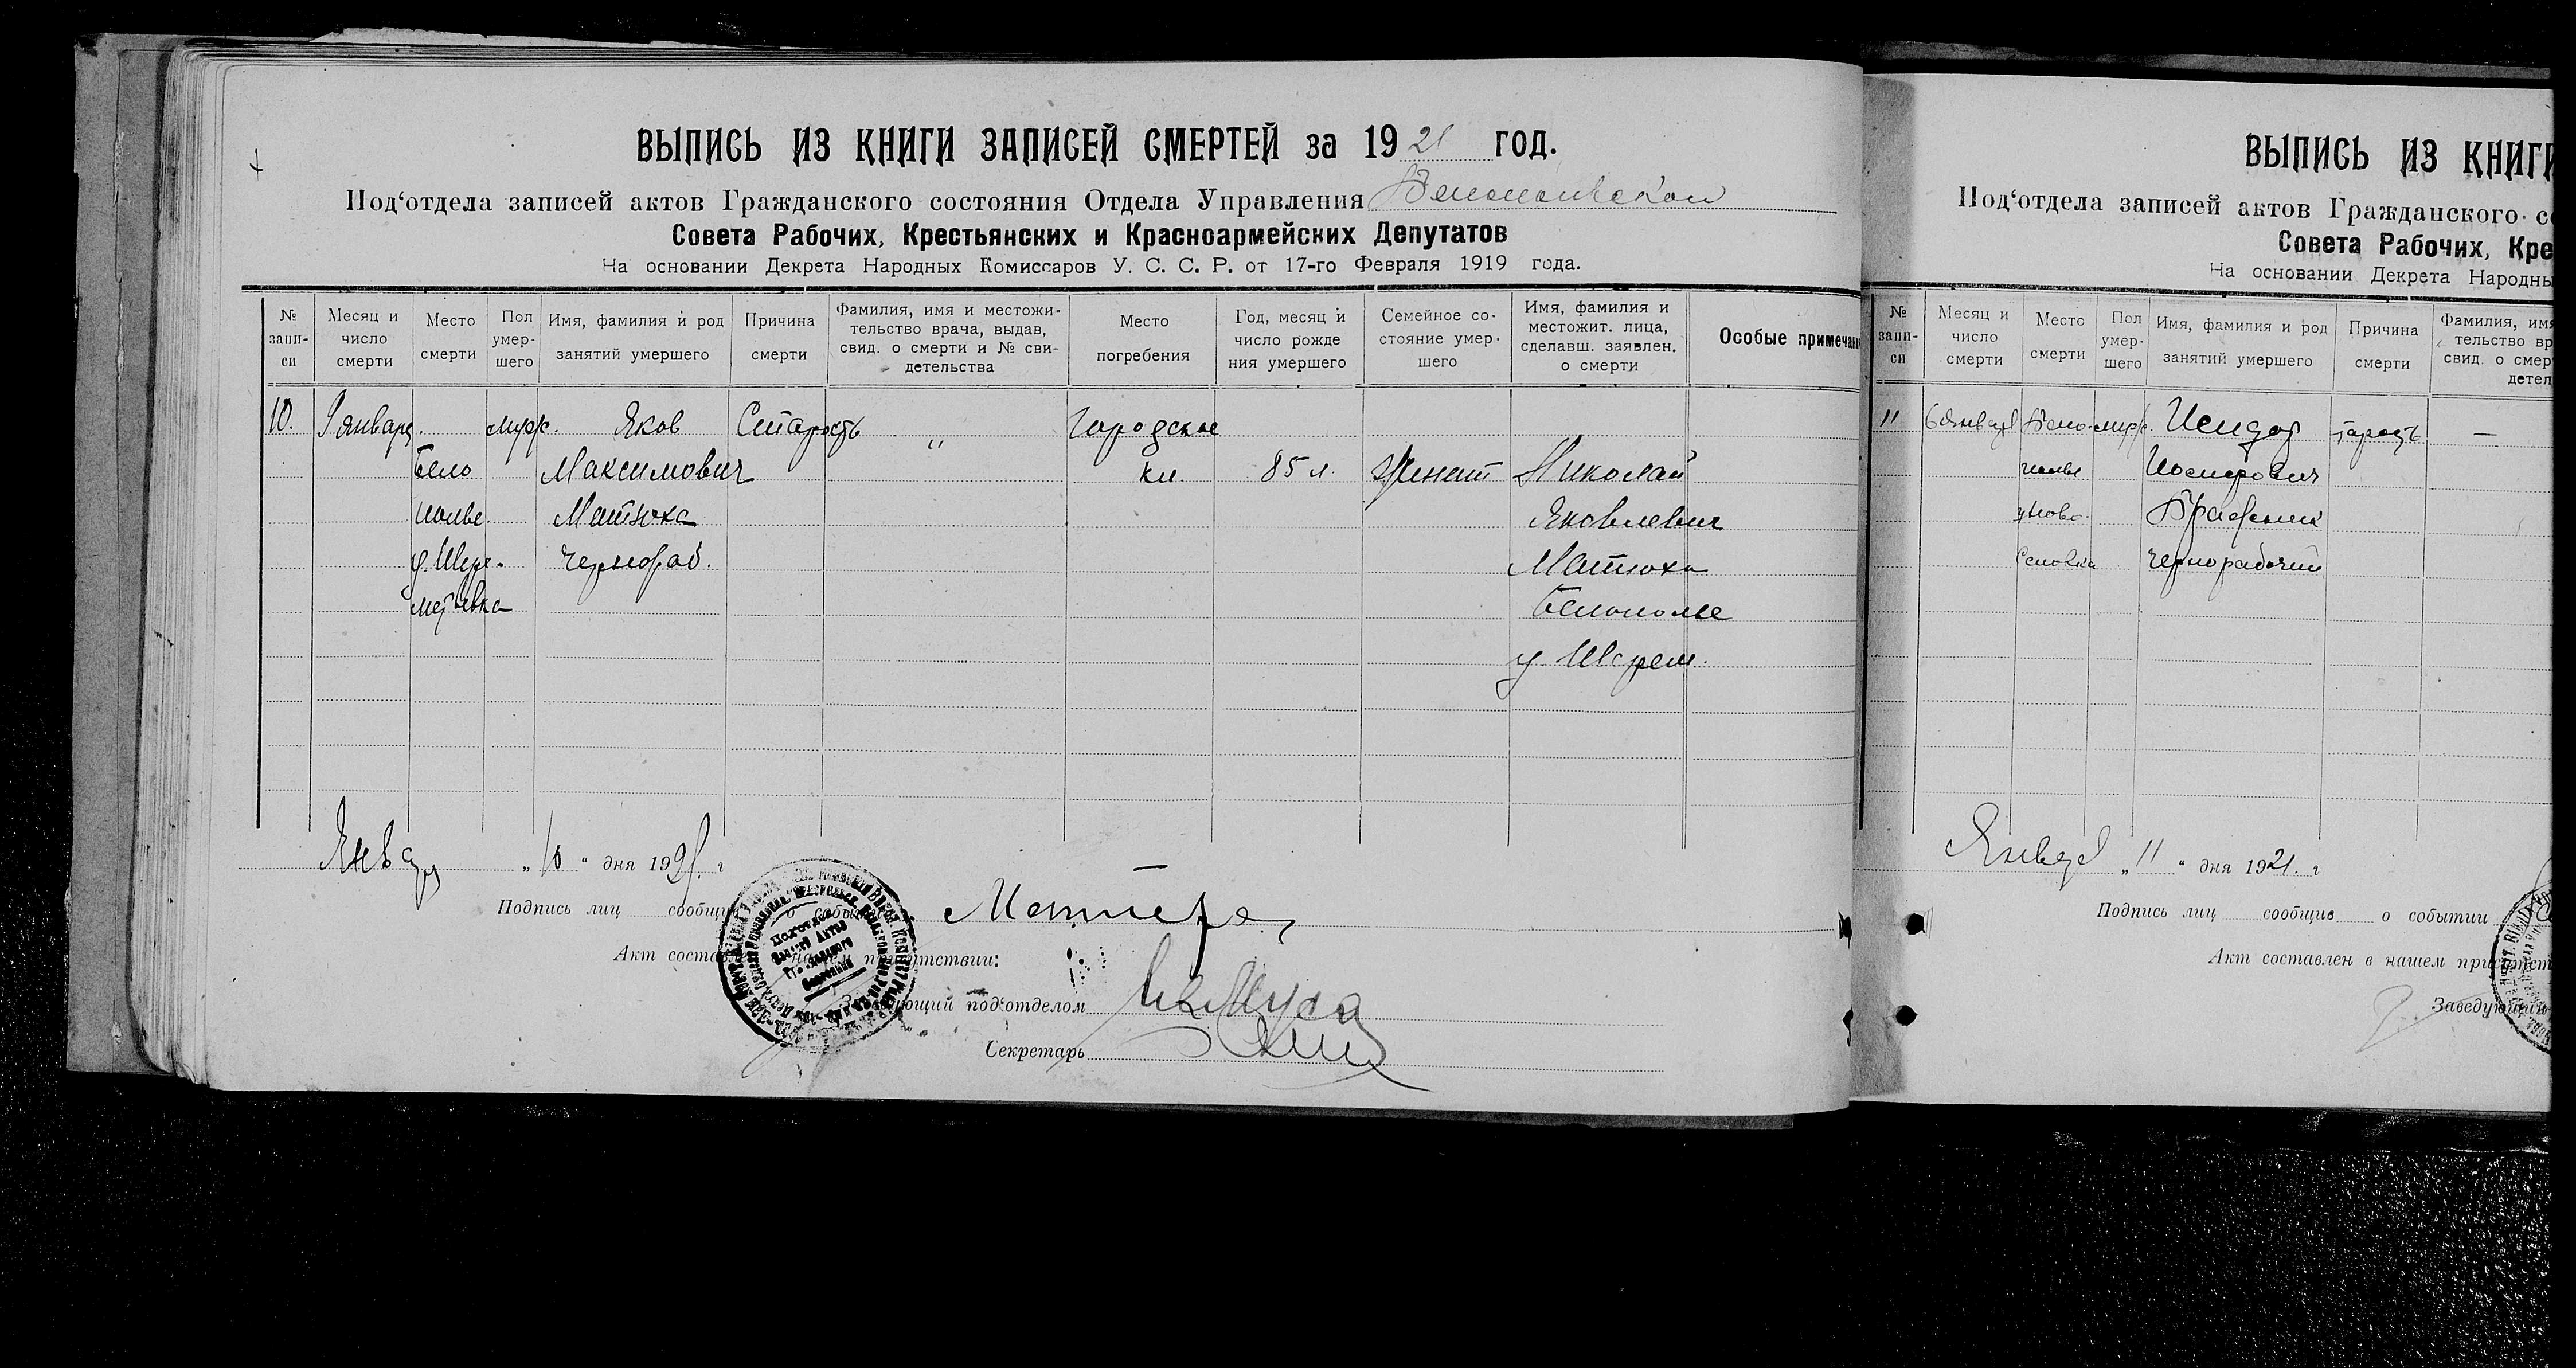 ВЫПИСЬ ИЗ КНИГИ ЗАПИСЕЙ СМЕРТЕЙ за 1921 год.
Под‘отдела записей актов Гражданского состояния Отдела Управления
Совета Рабочих, Крестьянских и Красноармейских Депутатов
На основании Декрета Народных Комиссаров У. С. С. Р. от 17-го Февраля 1919 года.
№ запи-си
Месяц и число смерти
Место смерти
Пол умер-шего
Имя, фамилия и род занятий умершего
Причина смерти
Фамилия, имя и местожи-тельство врача, выдав, свид. о смерти и № сви-детельства
Место погребения
Год, месяц и число рожде ния умершего
Семейное со-стояние умер-шего
Имя, фамилия и местожит. лица, сделавш. заявлен. о смерти
Особые примечан
10. января муж. Яков Старость " Городское
Бело Максимович кл. 85 л. женат Николай
полье Матюха Яковлевич
чернораб. Матюха
Белополье
Январ „10“ дня 1921. г
Подпись лиц сообщ
Акт состав
под‘отделом
Секретарь
ВЫПИСЬ ИЗ КНИГИ
Под‘отдела записей актов Гражданского со
Совета Рабочих, Кре
На основании Декрета Народны
№ запи-си
Месяц и число смерти
Место смерти
Пол умер-шего
Имя, фамилия и род занятий умершего
Причина смерти
Фамилия, имя тельство вр свид. о смер детел
11 6 января Бело муж. Исидор старость —
полье Иосифович
чернорабочий
Января „11“ дня 1921. г
Подпись лиц сообщив о событии
Акт составлен в нашем присутст
Заведующий